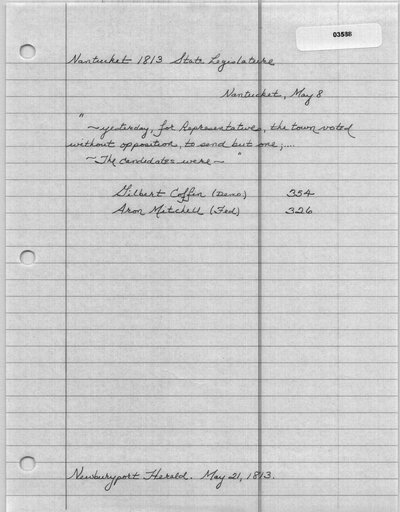 03558
Nantucket 1813 State Legislature
Nantucket, May 8
" ~ yesterday, for Representatives, the town voted
without opposition, to send but one; ....
~ The candidates were ~ "
Gilbert Coffin (Demo) 354
Aron Mitchell (Fed) 326
Newburyport Herald. May 21, 1813.